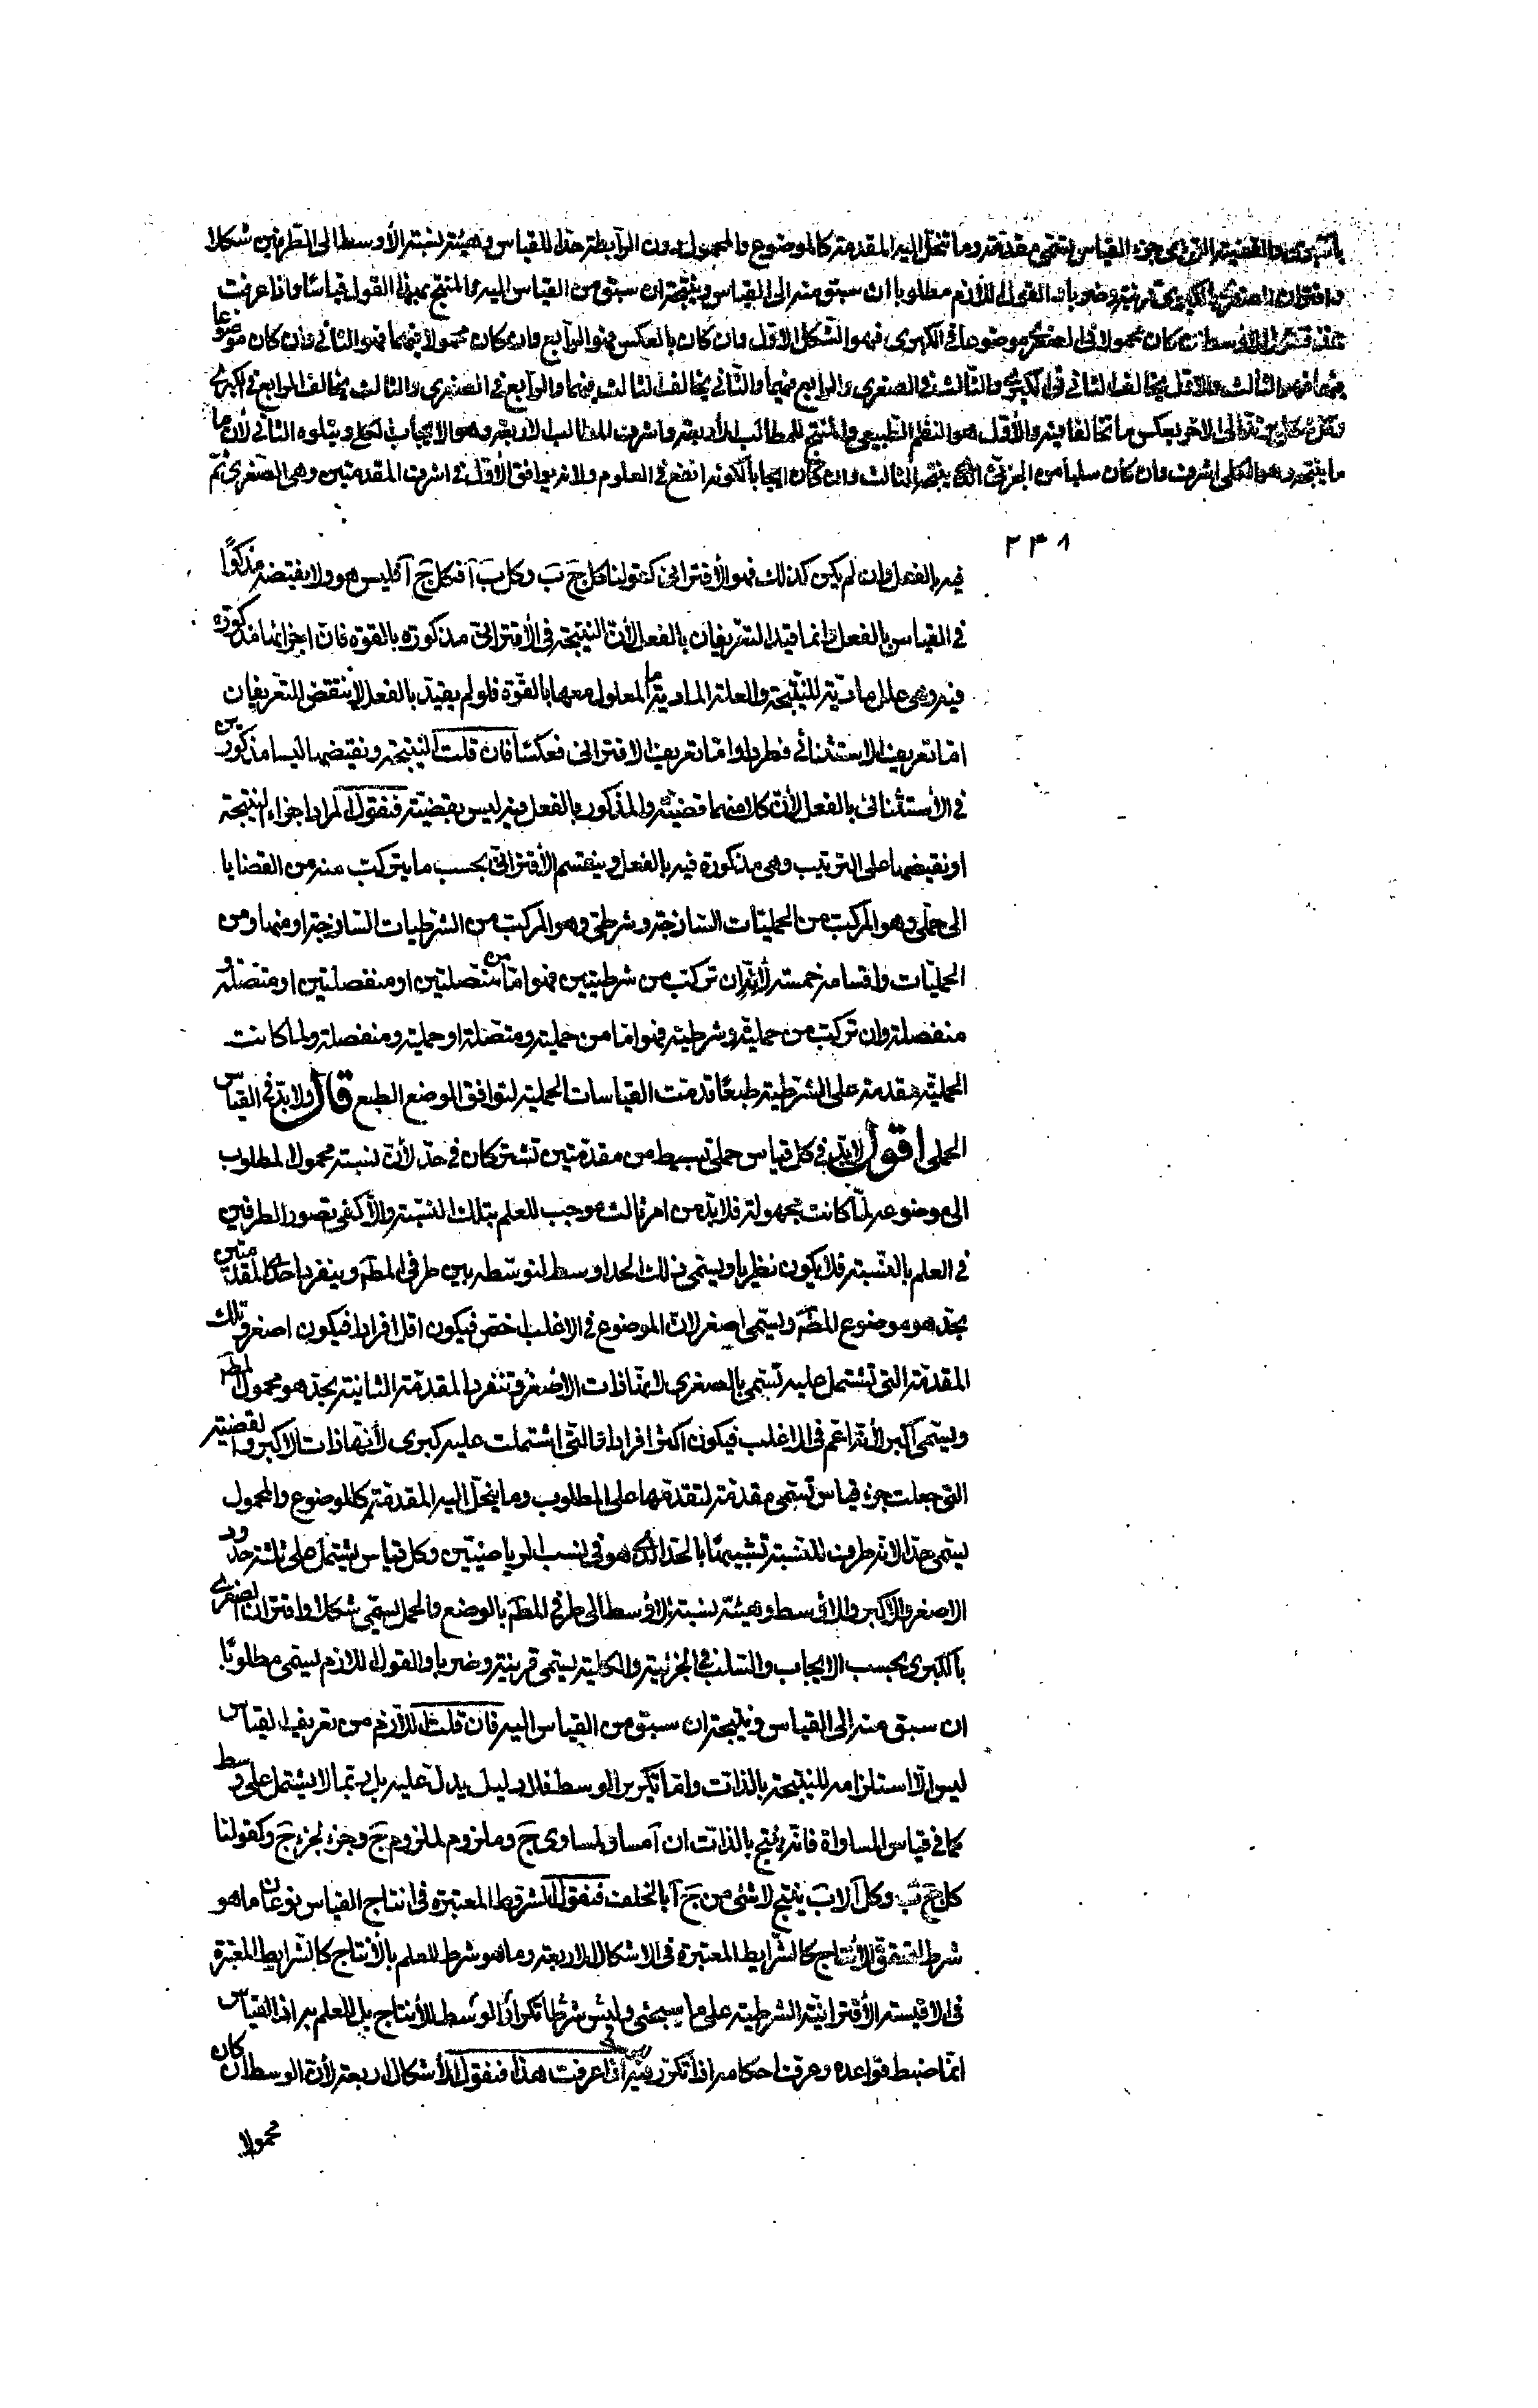 بالكبرى والقضية التى هى جزء القياس تسمّى مقدّمة وما تنحلّ اليه المقدمة كالموضوع والمحمول دون الرابطة حدّا للقياس وهيئة نسبة الأوسط الى الطرفين شكلا
واقتران الصغرى بالكبرى قرينة وضربا والقول اللازم مطلوبا ان سبق منه الى القياس ونتيجة ان سبق من القياس اليه والمنتج بهذا القول قياسًا واذا عرفت
هذا فنقول الأوسط ان كان محمولا فى الصغرى موضوعا فى الكبرى فهو الشكل الاوّل وان كان بالعكس فهو الرابع وان كان محمولا فيهما فهو الثانى وان كان موضوعا
فيهما فهو الثالث والاوّل يخالف الثانى فى الكبرى والثالث فى الصغرى والرابع فيهما والثانى يخالف الثالث فيهما والرابع فى الصغرى والثالث يخالف الرابع فى الكبرى
وكل منها يرتدّ الى الاخر بعكس ما تخالفا فيه والأوّل هو النظم الطبيعى والمنتج للمطالب الأربعة واشرف المطالب الاربعة وهو الايجاب الكلى ويتلوه الثانى لأن
ما ينتجه وهو الكلى اشرف وان كان سلبا من الجزئى الذى ينتجه الثالث وان كان ايجابا لكونه انفع فى العلوم ولانه يوافق الأوّل فى اشرف المقدمتين وهى الصغرى ثمّ
٢٣٨
فيه بالفعل وان لم يكن كذلك فهو الأقترانى كقولنا كل جَ بَ وكل بَ آ فكل جَ آ فليس هو ولا نقيضه مذكورًا
فى القياس بالفعل وانما قيد التعريفان بالفعل لأن النتيجة فى الأقترانى مذكورة بالقوة فان اجزائها مذكورة
فيه وهى علل مادّية للنتيجة والعلة المادية ما المعلول معها بالقوّة فلو لم يقيّد بالفعل لأنتقض التعريفان
امّا تعريف الاستثنائى فطردا وامّا تعريف الاقترانى فعكسًا فان قلت النتيجة ونقيضها ليسا مذكورين
فى الأستثنائى بالفعل لأنّ كلا منهما قضيّة والمذكور بالفعل فيه ليس بقضيّة فنقول المراد اجزاء النتيجة
او نقيضها على الترتيب وهى مذكورة فيه بالفعل وينقسم الأقترانى بحسب ما يتركب منه من القضايا
الى حملى وهو المركب من الحمليّات الساذجة وشرطى وهو المركب من الشرطيات الساذجة او منها ومن
الحمليّات واقسامه خمسة لأنه ان تركب من شرطيتين فهو امّا من متّصلتين او منفصلتين او متصلة و
منفصلة وان تركب من حملية وشرطية فهو امّا من حملية ومتصلة او حملية ومنفصلة ولما كانت
الحمليّة مقدمة على الشرطية طبعًا قدمت القياسات الحملية لتوافق الوضع الطبع قال ولا بدّ فى القياس
الحملى اقول لا بدّ فى كل قياس حملى بسيط من مقدّمتين تشتركان فى حدّ لأنّ نسبة محمول المطلوب
الى موضوعه لمّا كانت مجهولة فلا بدّ من امر ثالث موجب للعلم بتلك النسبة والّا كفى تصور الطرفين
فى العلم بالنسبة فلا يكون نظريا ويسمّى ذلك الحد اوسط لتوسّطه بين طرفى المطّ وينفرد احدى المقدّمتين
بحدّ هو موضوع المطّ ويسمّى اصغر لانّ الموضوع فى الاغلب اخصّ فيكون اقل افرادا فيكون اصغر وتلك
المقدّمة التى تشتمل عليه تسمّى بالصغرى لانّها ذات الأصغر وتنفرد المقدّمة الثانية بحدّ هو محمول المطّ
ويسمّى اكبر لأنه اعمّ فى الاغلب فيكون اكثر افرادا والتى اشتملت عليه كبرى لأنّها ذات الاكبر والقضية
التى جعلت جزء قياس تسمّى مقدّمة لتقدّمها على المطلوب وما ينحلّ اليه المقدّمة كالموضوع والمحمول
يسمّى حدّا لانه طرف للنسبة تشبيها بالحدّ الذى هو فى نسب الرياضيّين وكل قياس يشتمل على ثلثة حدود
الاصغر والاكبر والاوسط وهيئة نسبة الاوسط الى طرفى المطّ بالوضع والحمل يسمّى شكلا واقتران الصغرى
بالكبرى بحسب الايجاب والسّلب فى الجزئية والكلية يسمّى قرينة وضربا والقول اللازم يسمّى مطلوبًا
ان سبق منه الى القياس ونتيجة ان سبق من القياس اليه فان قلت اللازم من تعريف القياس
ليس الّا استلزامه للنتيجة بالذات وامّا تكرير الوسط فلا دليل يدلّ عليه بل ربّما لا يشتمل على وسط
كما فى قياس المساواة فانّه ينتج بالذات ان آ مساو لمساوى جَ وملزوم لملزوم جَ وجزء لجزء جَ وكقولنا
كل جَ بَ وكل آ لا بَ ينتج لا شئ من جَ آ بالخلف فنقول الشرط المعتبرة فى انتاج القياس نوعان ما هو
شرط لتحقّق الأنتاج كالشّرايط المعتبرة فى الاشكال الاربعة وما هو شرط للعلم بالأنتاج كالشرايط المعتبرة
فى الاقيسة الأقترانيّة الشرطية على ما سيجئ وليس شرطا تكرار الوسط للأنتاج بل للعلم به اذ القياس
انّما ضبط قواعده وعرف احكامه اذا تكرّر فيه اذا عرفت هذا فنقول الأشكال اربعة لأنّ الوسط ان كان
محمولا